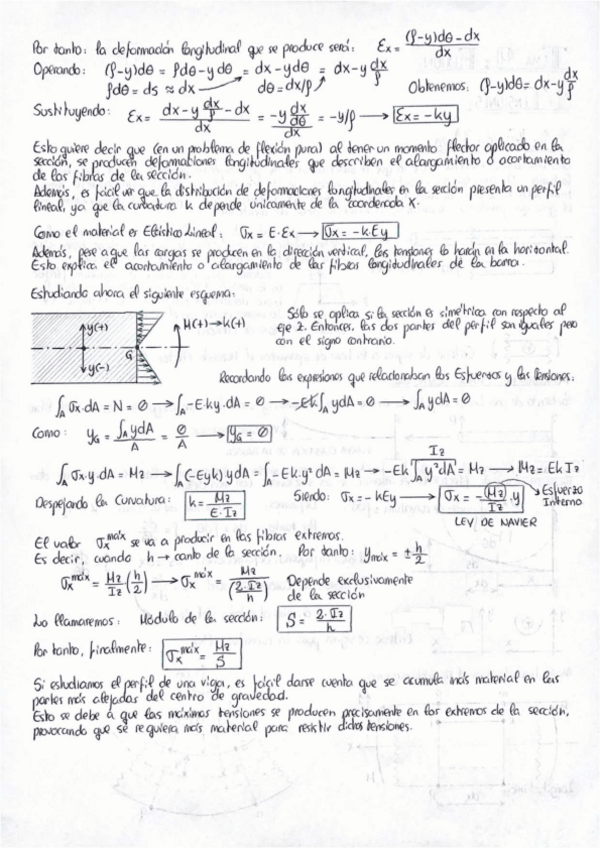 Por tanto: la deformación longitudinal que se produce será: Ɛx = (ρ-y)dθ - dx / dx
Operando: (ρ-y)dθ = ρdθ - y dθ = dx - y dθ = dx - y dx/ρ
ρdθ = ds ≈ dx dθ = dx/ρ Obtenemos: (ρ-y)dθ = dx - y dx/ρ
Sustituyendo: Ɛx = dx - y dx/ρ - dx / dx = -y dx/dθ / dx = -y/ρ → Ɛx = -ky
Esto quiere decir que (en un problema de flexión pura) al tener un momento flector aplicado en la
sección, se producen deformaciones longitudinales que describen el alargamiento o acortamiento
de las fibras de la sección.
Además, es fácil ver que la distribución de deformaciones longitudinales en la sección presenta un perfil
lineal, ya que la curvatura k depende únicamente de la coordenada x.
Como el material es Elástico Lineal: σx = E·Ɛx → σx = -kEy
Además, pese a que las cargas se producen en la dirección vertical, las tensiones lo harán en la horizontal.
Esto explica el acortamiento o alargamiento de las fibras longitudinales de la barra.
Estudiando ahora el siguiente esquema:
y(+)
G
y(-)
M(+) → k(+)
Sólo se aplica si la sección es simétrica con respecto al
eje z. Entonces, las dos partes del perfil son iguales pero
con el signo contrario.
Recordando las expresiones que relacionaban los Esfuerzos y las tensiones:
∫A σx·dA = N = 0 → ∫A -E·ky·dA = 0 → -Ek∫A ydA = 0 → ∫A ydA = 0
Como: yG = ∫A ydA / A = 0/A → yG = 0
∫A σx·y·dA = Mz → ∫A (-Eyk) y dA = ∫A -Ek·y² dA = Mz → -Ek ∫A y²dA = Mz → Mz = Ek Iz
Iz
Despejando la Curvatura: k = Mz / E·Iz Siendo: σx = -kEy → σx = - Mz/Iz ·y Esfuerzo
Interno
LEY DE NAVIER
El valor σx máx se va a producir en las fibras extremos.
Es decir, cuando h → canto de la sección. Por tanto: ymáx = ± h/2
σx máx = Mz/Iz (h/2) → σx máx = Mz / (2·Iz/h) Depende exclusivamente
de la sección
Lo llamaremos: Módulo de la sección: S = 2·Iz / h
Por tanto, finalmente: σx máx = Mz / S
Si estudiamos el perfil de una viga, es fácil darse cuenta que se acumula más material en las
partes más alejadas del centro de gravedad.
Esto se debe a que las máximas tensiones se producen precisamente en los extremos de la sección,
provocando que se requiera más material para resistir dichas tensiones.